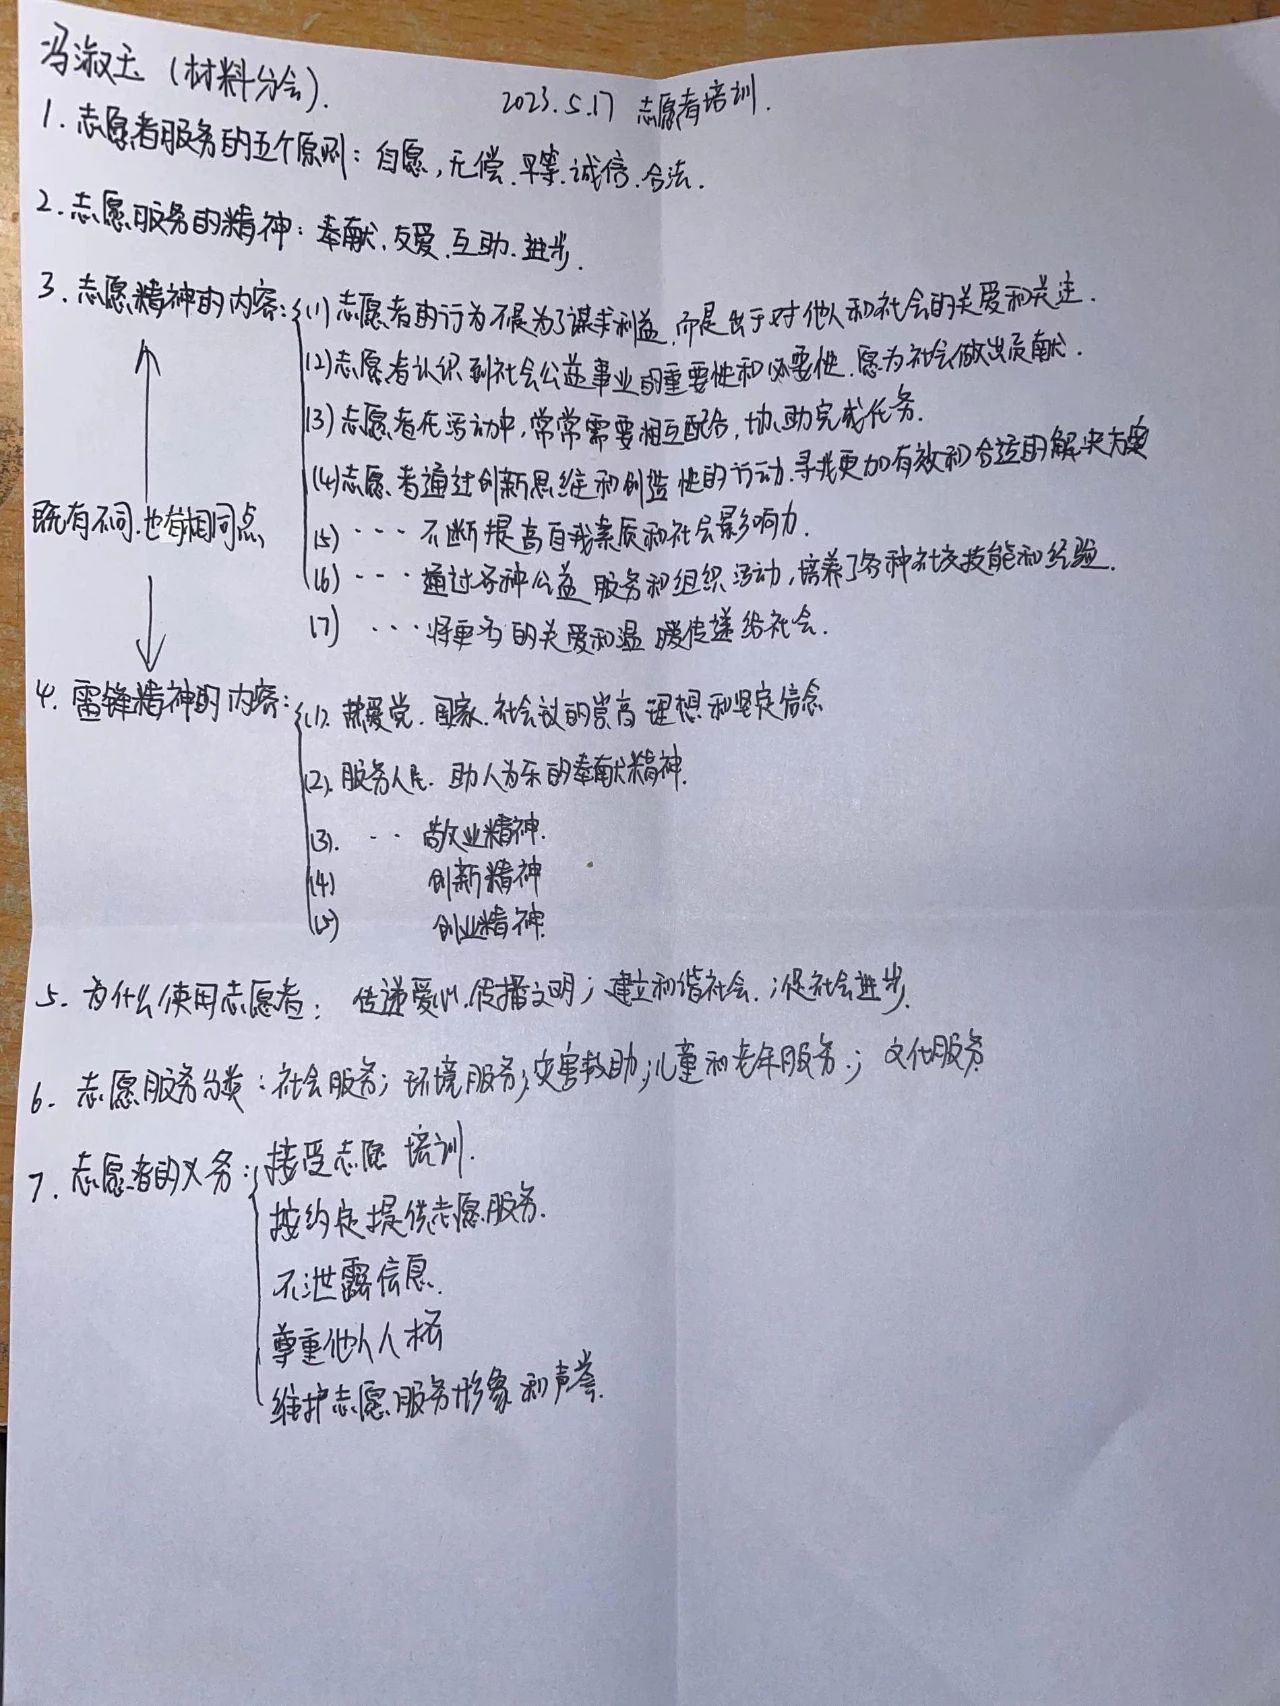 冯淑玉(材料分会).
2023.5.17 志愿者培训.
1.志愿者服务的五个原则:自愿,无偿.平等.诚信.合法.
2.志愿服务的精神:奉献.友爱.互助.进步.
3.志愿精神的内容:
(1)志愿者的行为不是为了谋求利益,而是出于对他人和社会的关爱和关注.
(2)志愿者认识到社会公益事业的重要性和必要性.愿为社会做出贡献.
(3)志愿者在活动中,常常需要相互配合,协助完成任务.
(4)志愿者通过创新思维和创造性的行动.寻找更加有效和合适的解决方案
(5)····不断提高自我素质和社会影响力.
(6)···通过各种公益服务和组织活动,培养了各种社交技能和经验.
(7)···将更多的关爱和温暖传递给社会.
既有不同.也有相同点
4.雷锋精神的内容:
(1).热爱党.国家.社会议的崇高理想和坚定信念
(2).服务人民.助人为乐的奉献精神.
(3).··敬业精神.
(4) 创新精神
(5) 创业精神.
5.为什么使用志愿者:传递爱心.传播文明;建立和谐社会.;促社会进步.
6.志愿服务分类:社会服务;环境服务;灾害救助;儿童和老年服务.;文化服务
7.志愿者的义务:
接受志愿培训.
按约定提供志愿服务.
不泄露信息.
尊重他人人格
维护志愿服务形象和声誉.